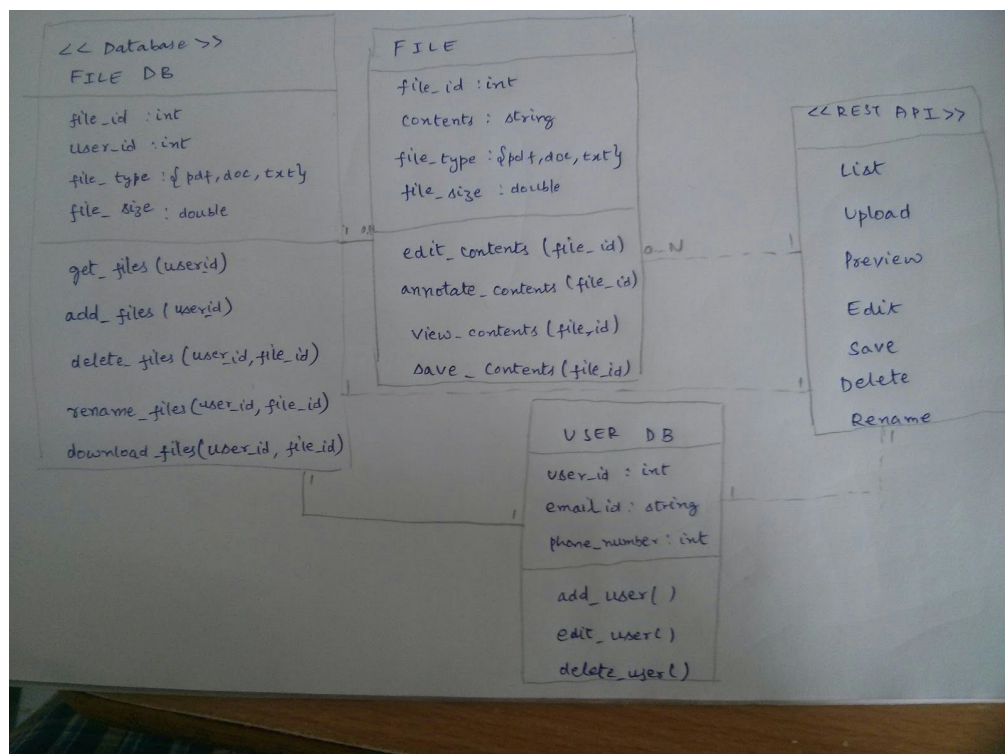 << Database >>
FILE DB
file_id : int
user_id : int
file_type : { pdf, doc, txt}
file_size : double
get_files (userid)
add_files (userid)
delete_files (user_id, file_id)
rename_files (user_id, file_id)
download_files(user_id, file_id)
FILE
file_id : int
contents : string
file_type : {pdf, doc, txt}
file_size : double
edit_contents (file_id)
annotate_contents (file_id)
view_contents (file_id)
save_contents (file_id)
<< REST API >>
List
Upload
Preview
Edit
Save
Delete
Rename
1
0..N
1
1
1
USER DB
user_id : int
email id : string
phone_number : int
add_user( )
edit_user( )
delete_user( )
1
1
1
1